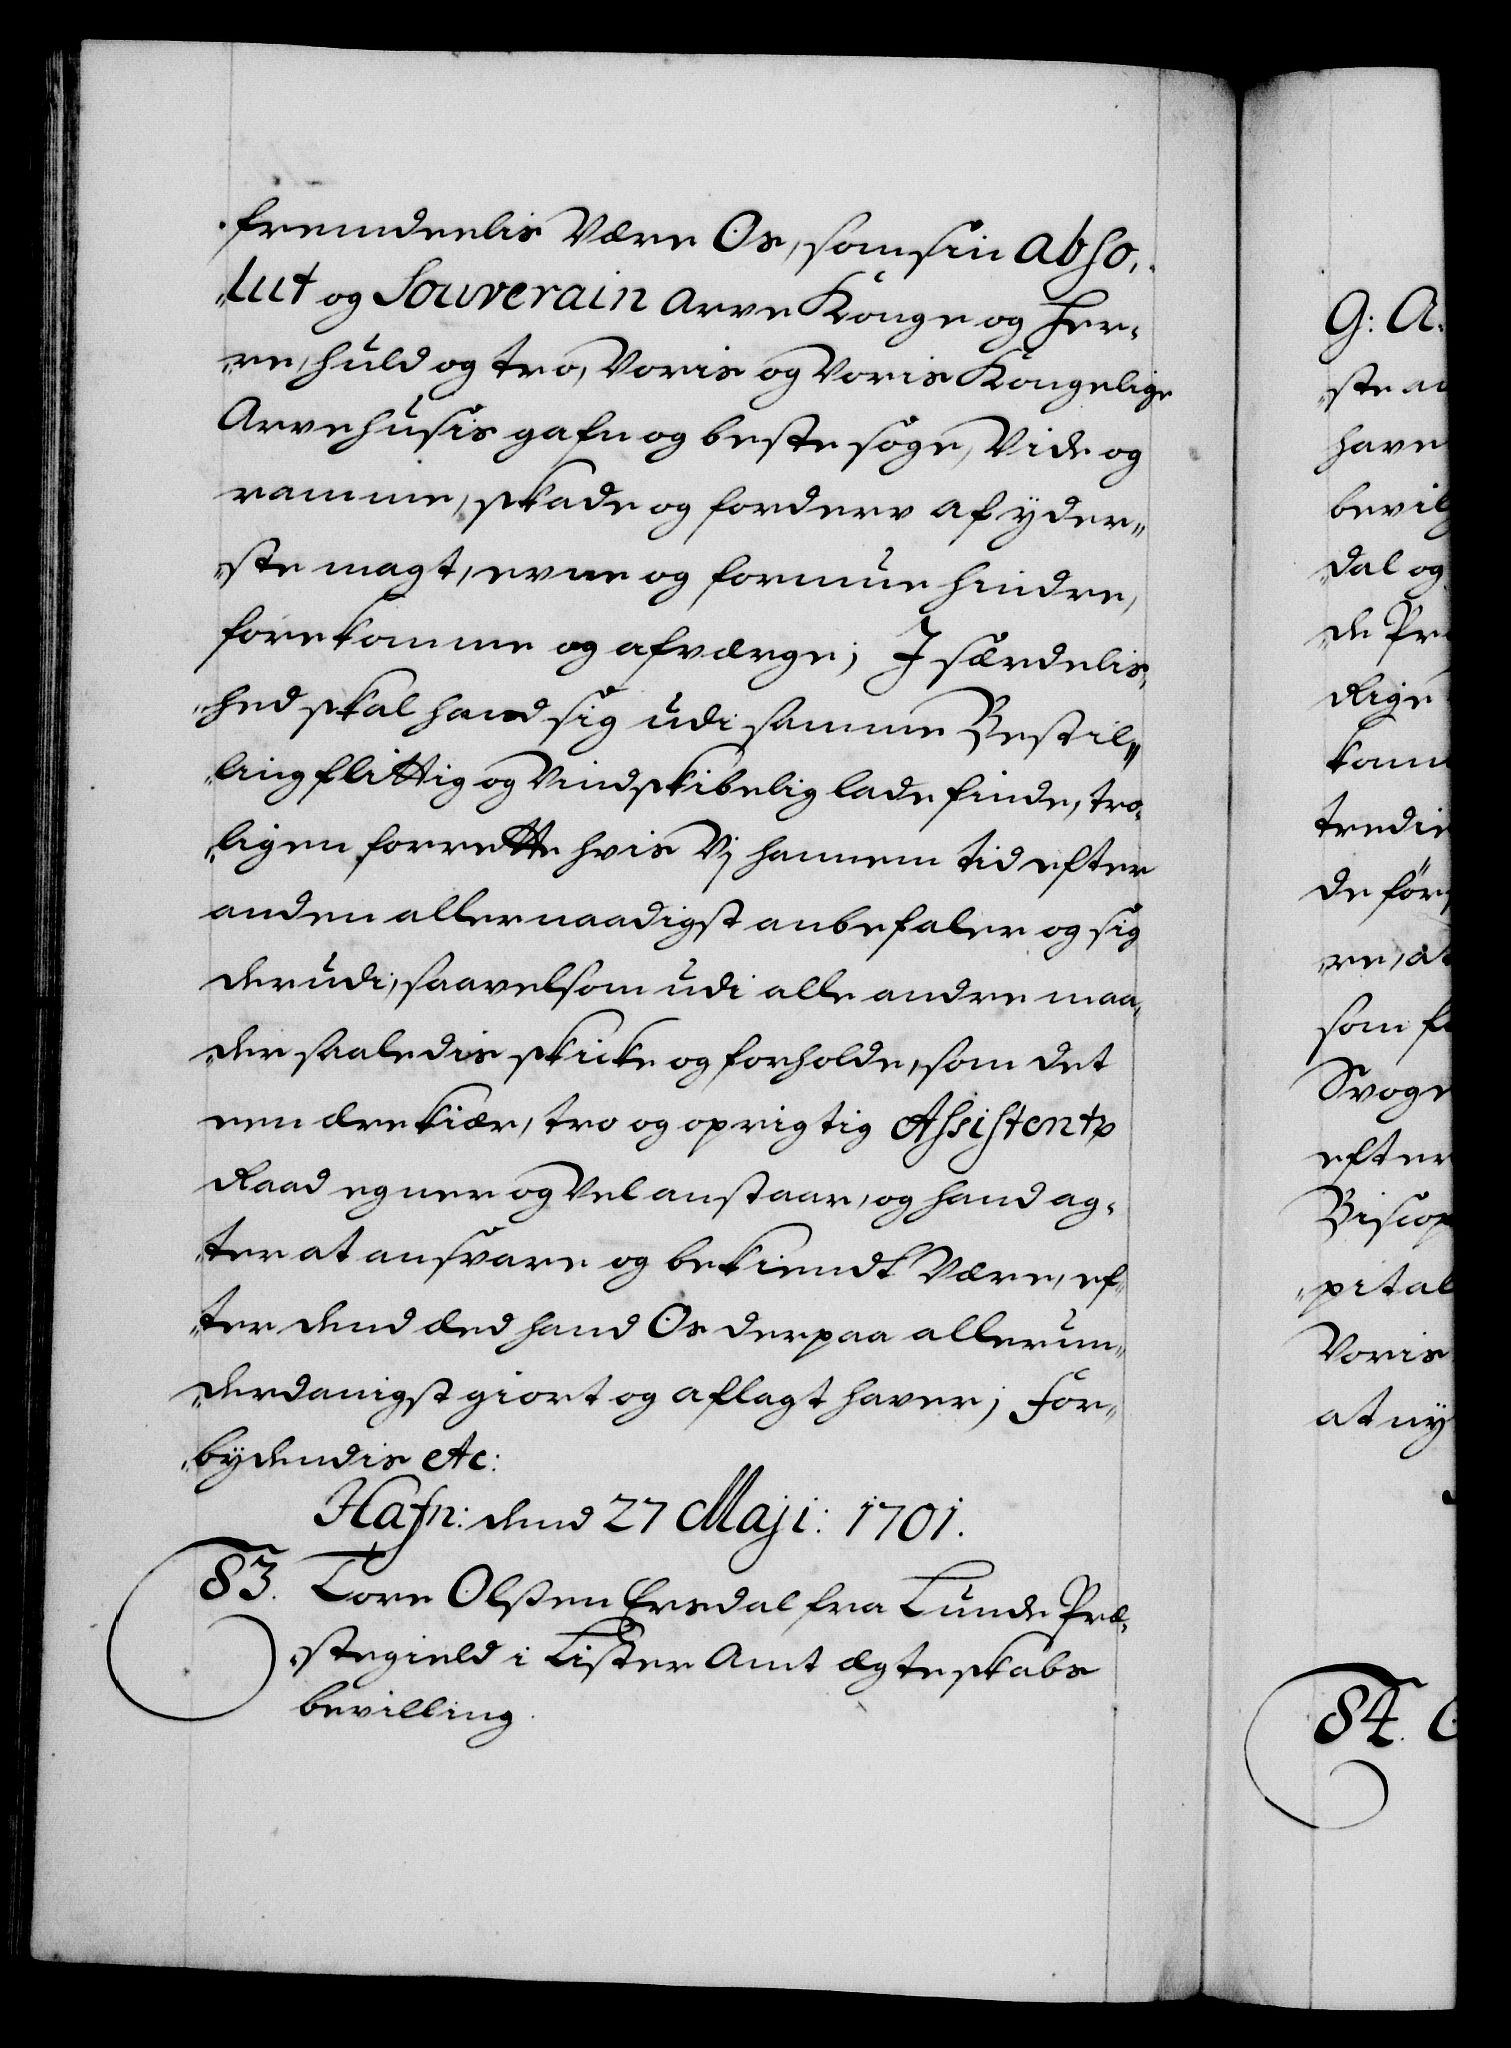 fremdeelis Være Os, som sin abso„
„lut og Souverain arve Konge og Her„
„re, huld og tro, Voris og Voris Kongelige
Arvehusis gafn og beste søge, Vide og
ramme, skade og forderv af yder„
„ste magt, evne og formue hindre,
forekomme og afværge; I særdelis„
„hed skal hand sig udi samme Bestil„
„ling flittig og Vindskibelig lade finde, tro„
„ligen forrette hvis Vj hannem tid efter
anden allernaadigst anbefaler og sig
derudi, saavelsom udi alle andre maa„
„der saaledis skicke og forholde, som det
een ærekiær, tro og oprigtig Assistentz
Raad egner og Vel anstaar, og hand ag„
„ter at ansvare og bekiendt Være, ef„
„ter dend æed hand Os derpaa allerun„
„derdanigst giort og aflagt haver; For„
„bydendis etc:
Hafn: dend 27 Maji: 1701.
83. Tore Olssen Ersdal fra Lunde Præ„
„stegield i Lister Amt ægteskabs
bevilling.
G: A.
„ste
have
bevilg
„dal og
„de Pr
Rige
kom
tredie
de før
„re, at
som f
Svoge
efter
Biscop
„pital
Voris
at ny
84.